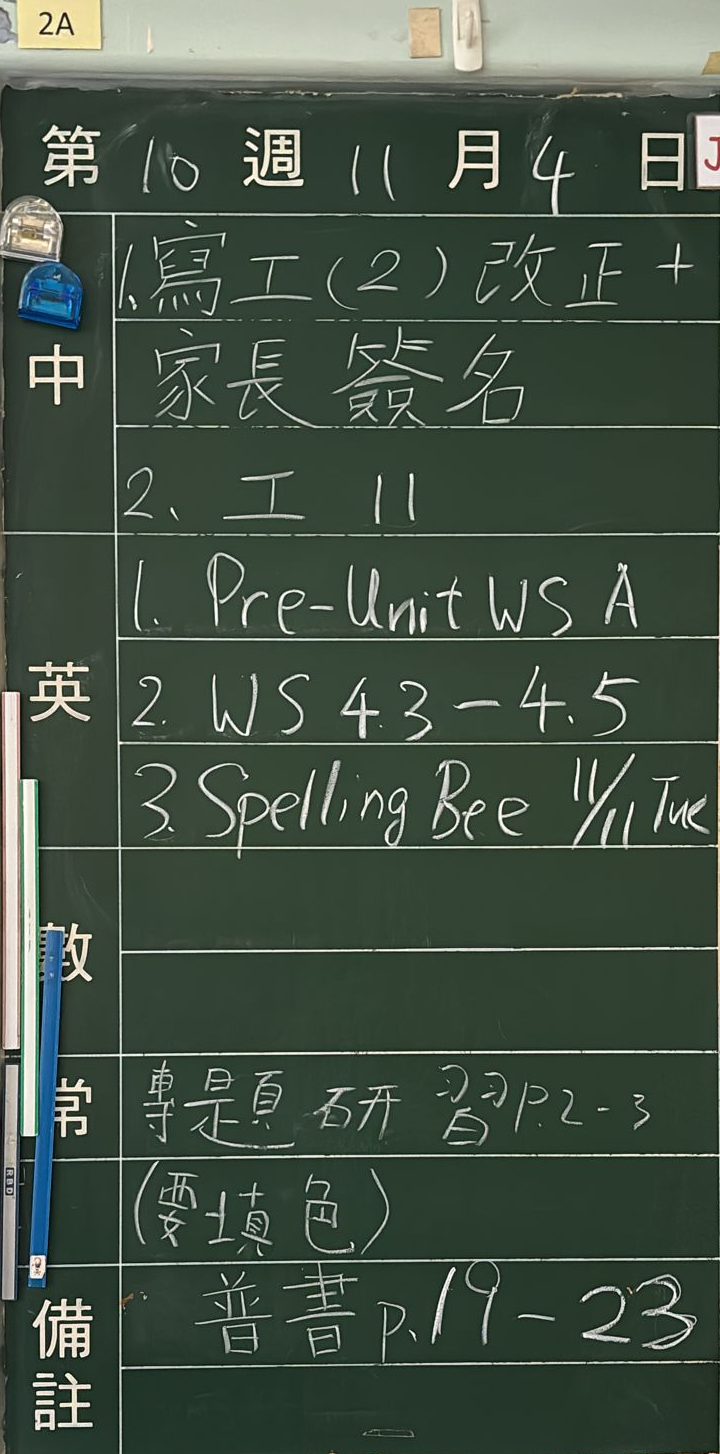 2A
第 10 週 11 月 4 日
J
中
1.寫工(2)改正+
家長簽名
2、工 11
英
1. Pre-Unit WS A
2. WS 4.3-4.5
3. Spelling Bee 11/11 Tue
數
常
專題研習P.2-3
(要填色)
RBD
備註
普書p.19-23